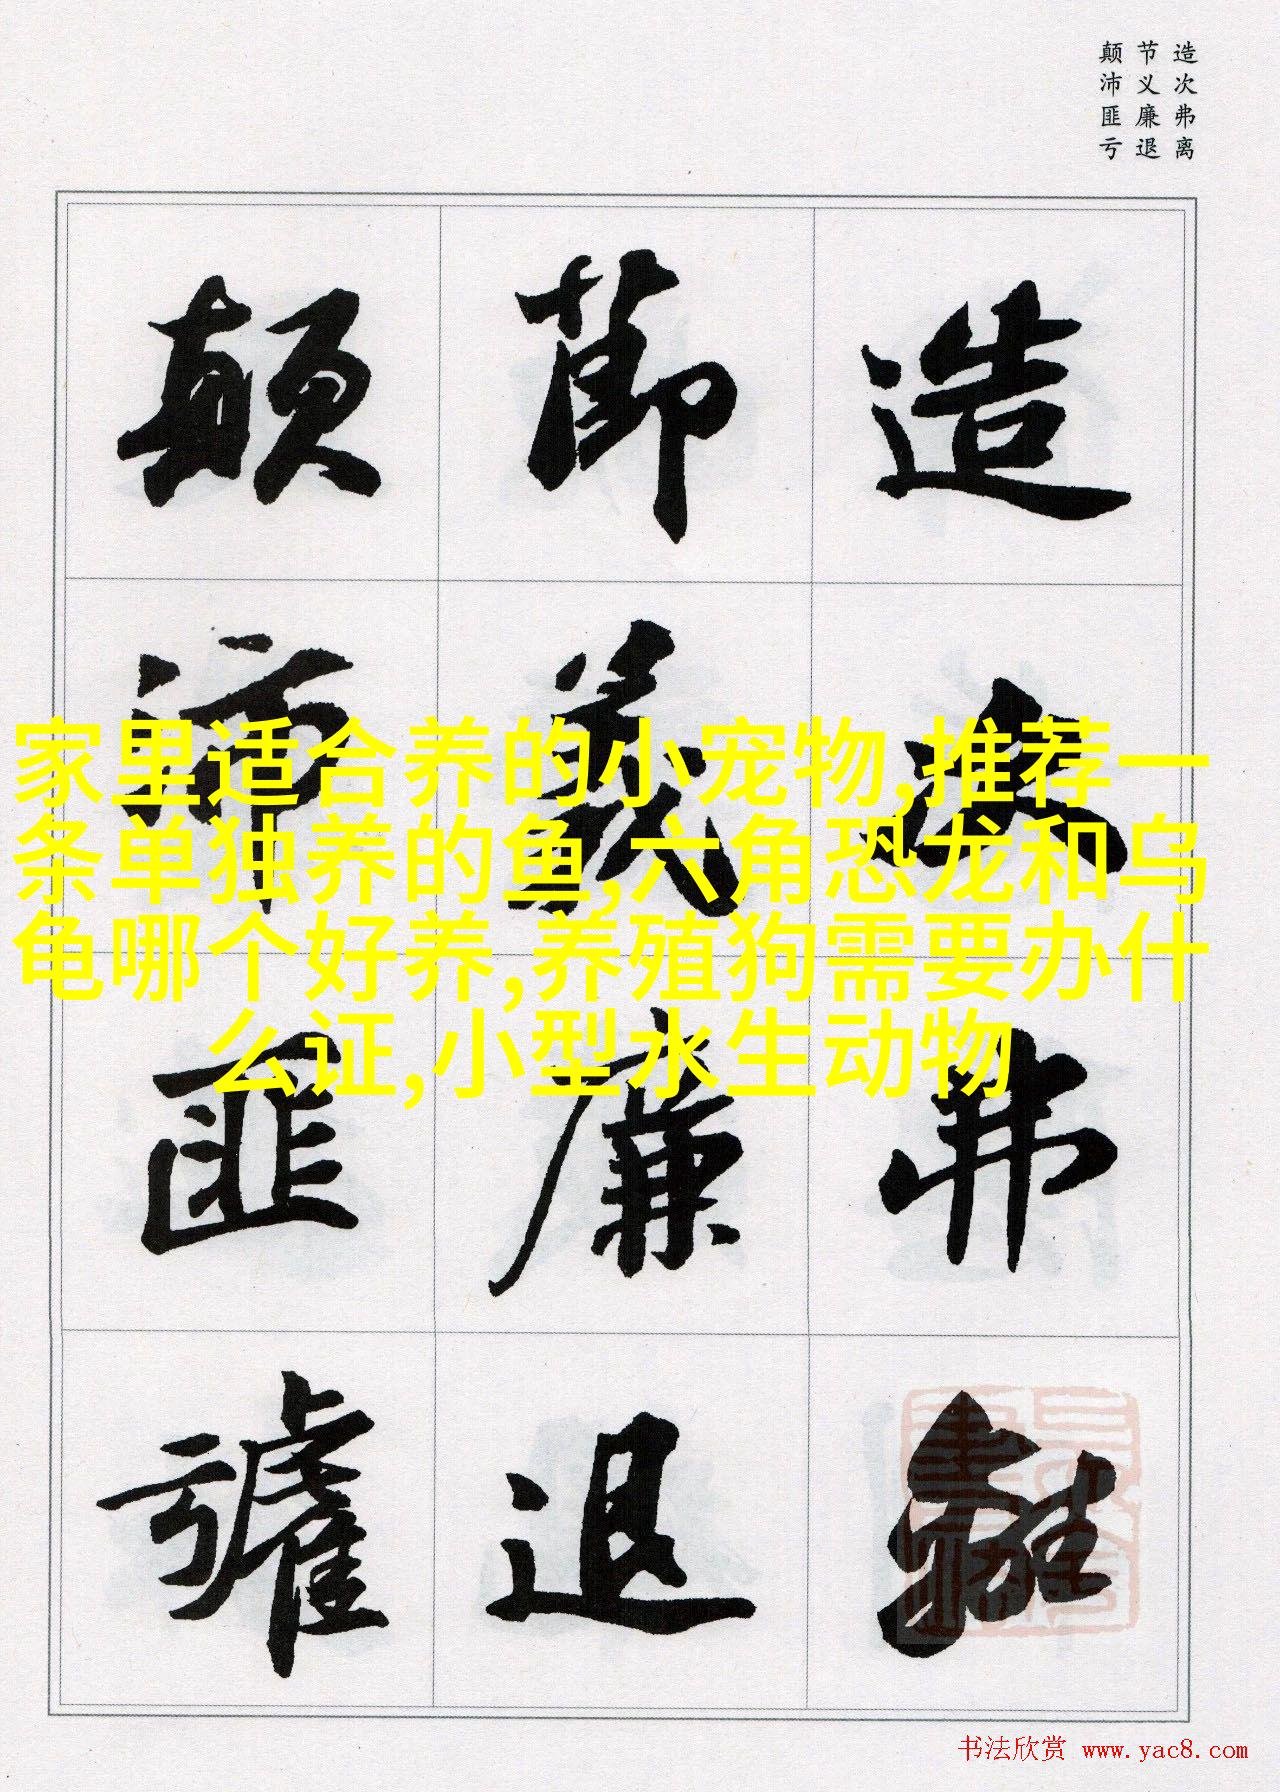 造次弗离
节义廉退
颠沛匪亏
造次弗離
節義廉退
顛沛匪虧
家里适合养的小宠物,推荐一
条单独养的鱼,六角恐龙和乌
龟哪个好养,养殖狗需要办什
么证,小型水生动物
书法欣赏 www.yac8.com